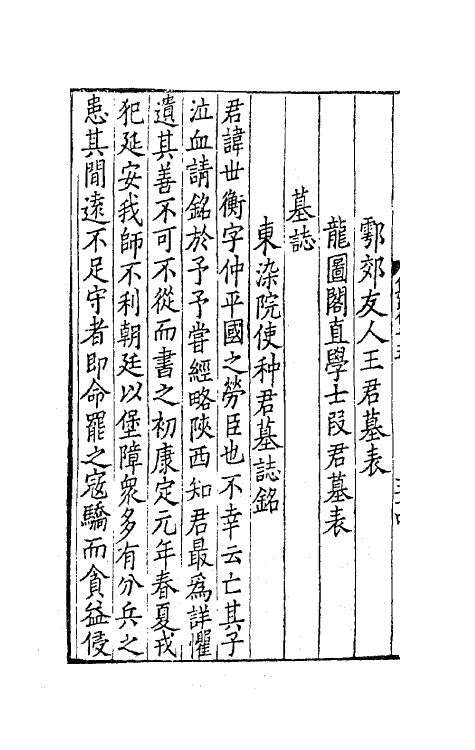 鄠郊友人王君墓表
龍圖閣直學士段君墓表
墓誌
東染院使种君墓誌銘
君諱世衡字仲平國之勞臣也不幸云亡其子
泣血請銘於予予嘗經略陝西知君最為詳懼
遺其善不可不從而書之初康定元年春夏戎
犯延安我師不利朝廷以堡障衆多有分兵之
患其間遠不足守者即命罷之寇驕而貪益侵